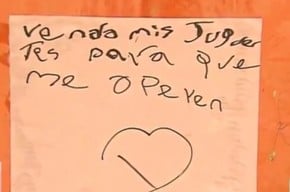 vendo mis Jugue
tes para que
me operen